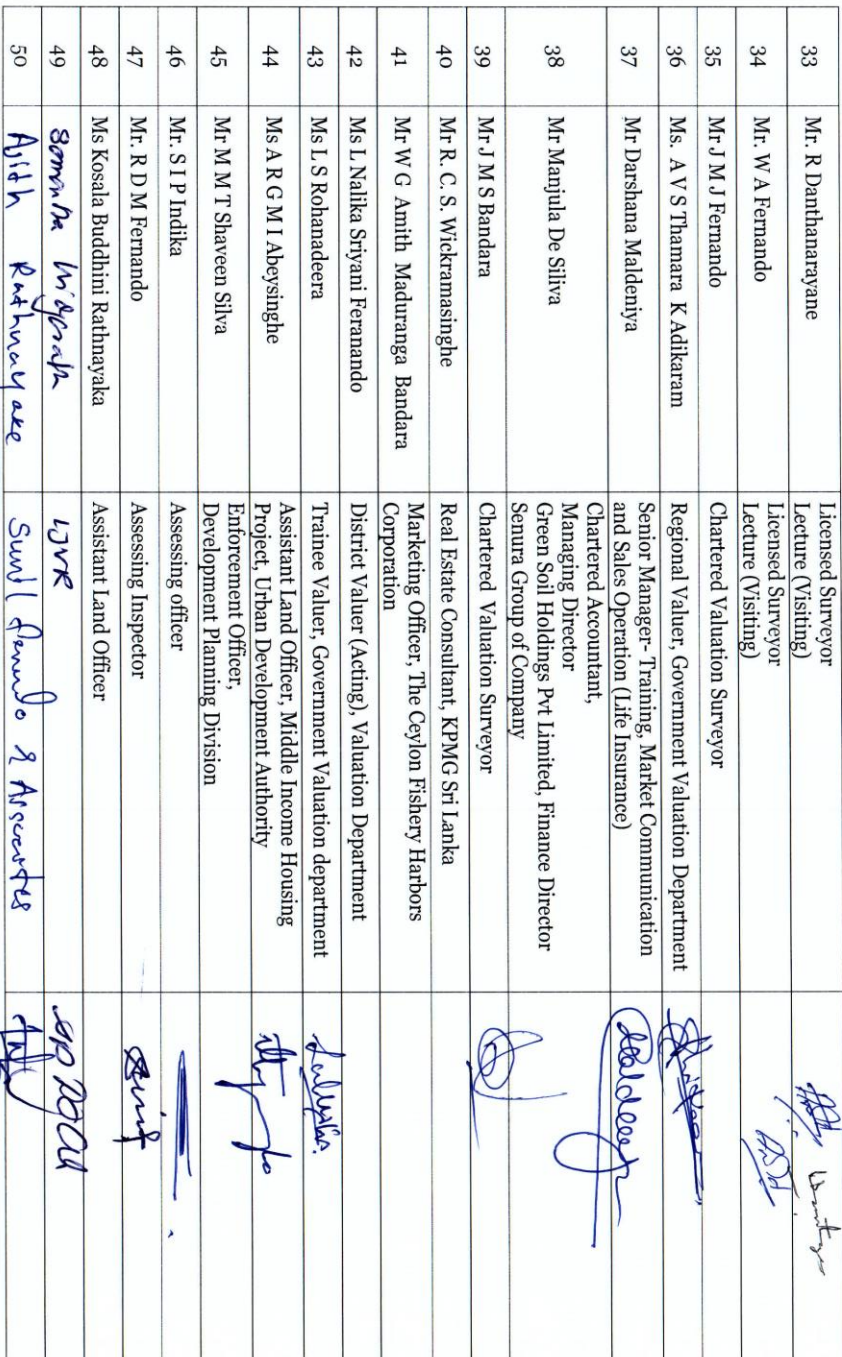 33 Mr. R Danthanarayane Licensed Surveyor
Lecture (Visiting)
34 Mr. W A Fernando Licensed Surveyor
Lecture (Visiting)
35 Mr J M J Fernando Chartered Valuation Surveyor
36 Ms. A V S Thamara K Adikaram Regional Valuer, Government Valuation Department
37 Mr Darshana Maldeniya Senior Manager- Training, Market Communication
and Sales Operation (Life Insurance)
38 Mr Manjula De Siliva Chartered Accountant,
Managing Director
Green Soil Holdings Pvt Limited, Finance Director
Senura Group of Company
39 Mr J M S Bandara Chartered Valuation Surveyor
40 Mr R. C. S. Wickramasinghe Real Estate Consultant, KPMG Sri Lanka
41 Mr W G Amith Maduranga Bandara Marketing Officer, The Ceylon Fishery Harbors
Corporation
42 Ms L Nalika Sriyani Feranando District Valuer (Acting), Valuation Department
43 Ms L S Rohanadeera Trainee Valuer, Government Valuation department
44 Ms A R G M I Abeysinghe Assistant Land Officer, Middle Income Housing
Project, Urban Development Authority
45 Mr M M T Shaveen Silva Enforcement Officer,
Development Planning Division
46 Mr. S I P Indika Assessing officer
47 Mr. R D M Fernando Assessing Inspector
48 Ms Kosala Buddhini Rathnayaka Assistant Land Officer
49
50 Ajith Rathnayake Sunil &